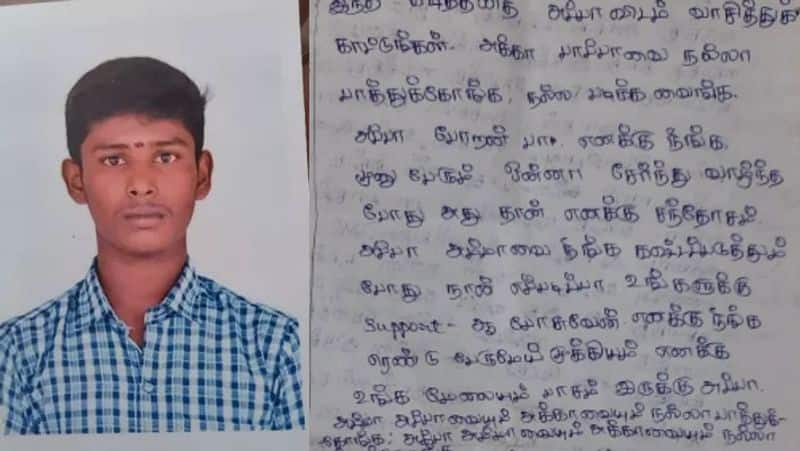 இந்த கடிதத்தை அம்மாவையும் வாசித்துக்
காட்டுங்கள். அக்கா பாப்பாவை நல்லா
பாத்துக்கோங்க, நல்ல படிக்க வைங்க.
அப்பா போறன் பா. எனக்கு நீங்க
மூனு பேரும் ஒன்னா சேர்ந்து வாழ்ந்த
போது அது தான் எனக்கு சந்தோசம்
அப்பா அம்மாவை நீங்க கஷ்டப்படுத்தும்
போது நான் எப்படிப்பா உங்களுக்கு
Support-ஆ பேசுவேன் எனக்கு நீங்க
ரெண்டு பேருமேய் முக்கியம் எனக்கு
உங்க மேலையும் பாசம் இருக்கு அப்பா.
அப்பா அம்மாவையும் அக்காவையும் நல்லா பாத்துக்-
கோங்க; அப்பா அம்மாவையும் அக்காவையும் நல்லா